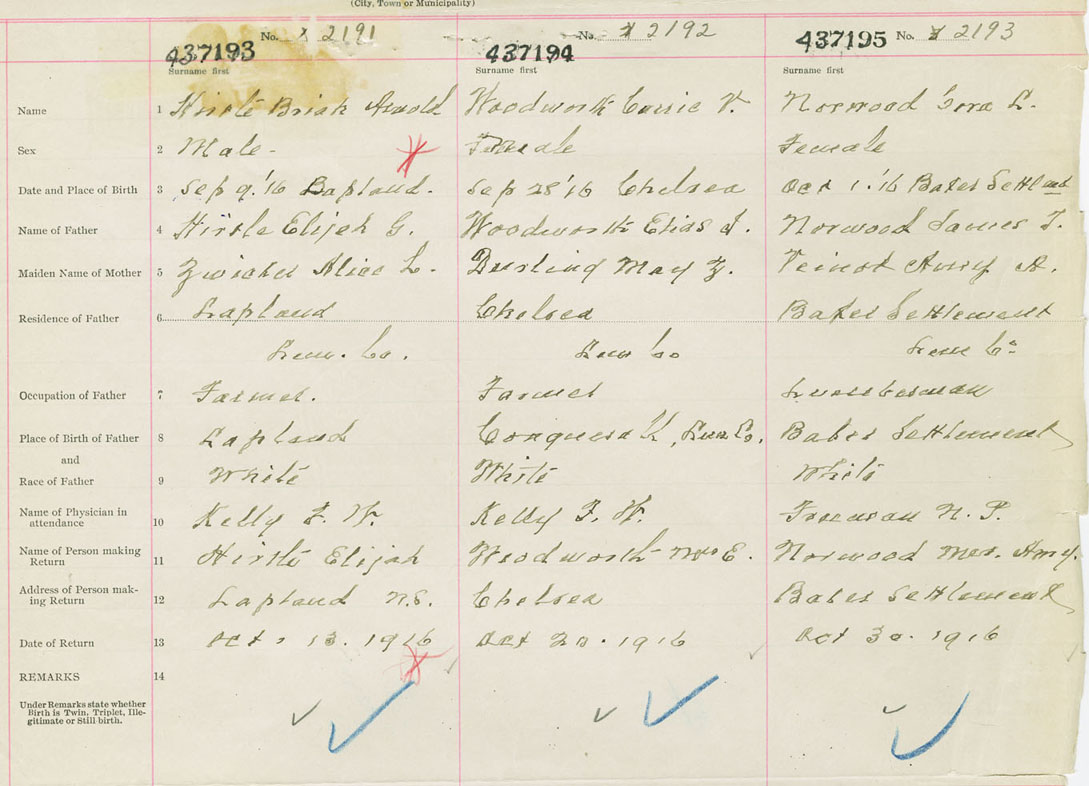 (City, Town or Municipality)
No. 2191 No. 2192 No. 2193
437193 437194 437195
Surname first Surname first Surname first
Name 1 Hirtle Arnold Woodworth Carrie V. Norwood L.
Sex 2 Male - Female Female
Date and Place of Birth 3 Sep 9.'16 Lapland. Sep 28'16 Chelsea Oct 1.'16 Baker Settlmt
Name of Father 4 Hirtle Elijah G. Woodworth Elias J. Norwood James T.
Maiden Name of Mother 5 Zwicker Alice L. Durling May Z. Veinot Amy A.
Residence of Father 6 Lapland Chelsea Baker Settlement
Lun. Co. Lun Co Lun Co
Occupation of Father 7 Farmer. Farmer Lumberman
Place of Birth of Father 8 Lapland Conquerall, Lun Co. Baker Settlement
and
Race of Father 9 White White White
Name of Physician in
attendance 10 Kelly F. W. Kelly F. W. Freeman N. P.
Name of Person making
Return 11 Hirtle Elijah Woodworth Mrs E. Norwood Mrs. Amy.
Address of Person mak-
ing Return 12 Lapland N.S. Chelsea Baker Settlement
Date of Return 13 Oct. 13. 1916 Oct 20. 1916 Oct 30. 1916
REMARKS 14
Under Remarks state whether
Birth is Twin, Triplet, Ille-
gitimate or Still birth.